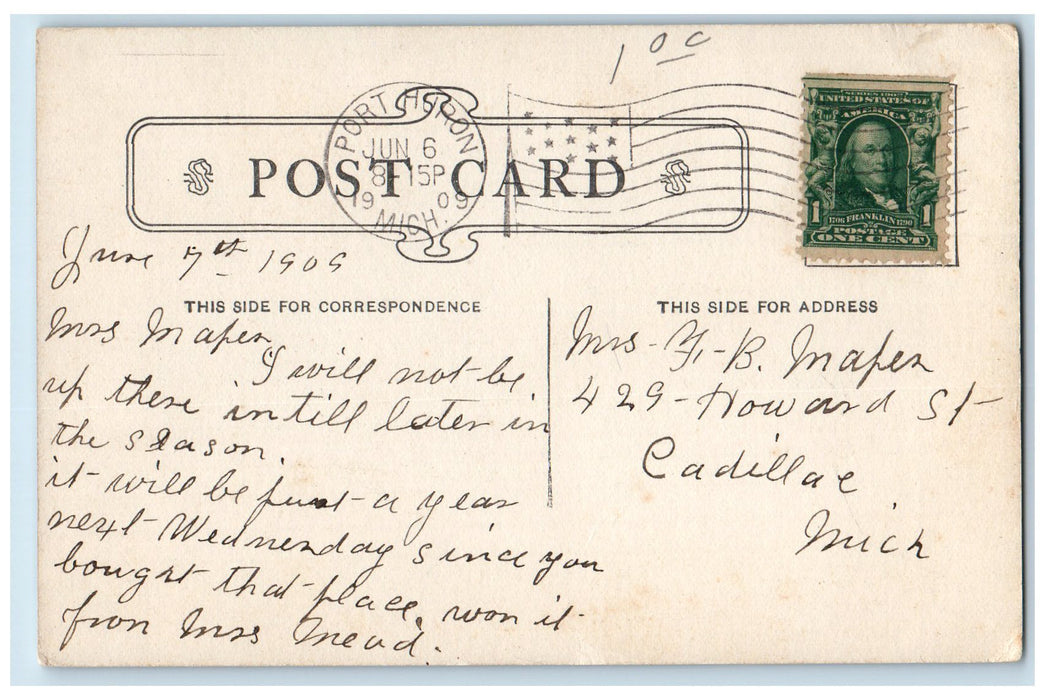 1 0c
PORT HURON
JUN 6
8-15P
1909
MICH.
POST CARD
SERIES 1902
UNITED STATES OF
AMERICA
1 1706 FRANKLIN 1790 1
POSTAGE
ONE CENT
June 7th 1909
THIS SIDE FOR CORRESPONDENCE
Mrs Mapen
I will not be
up there intill later in
the season.
it will be just a year
next Wednenday since you
bought that place, won it
fron Mrs Mead.
THIS SIDE FOR ADDRESS
Mrs-F-B. Mapen
429-Howard St-
Cadillac
Mich